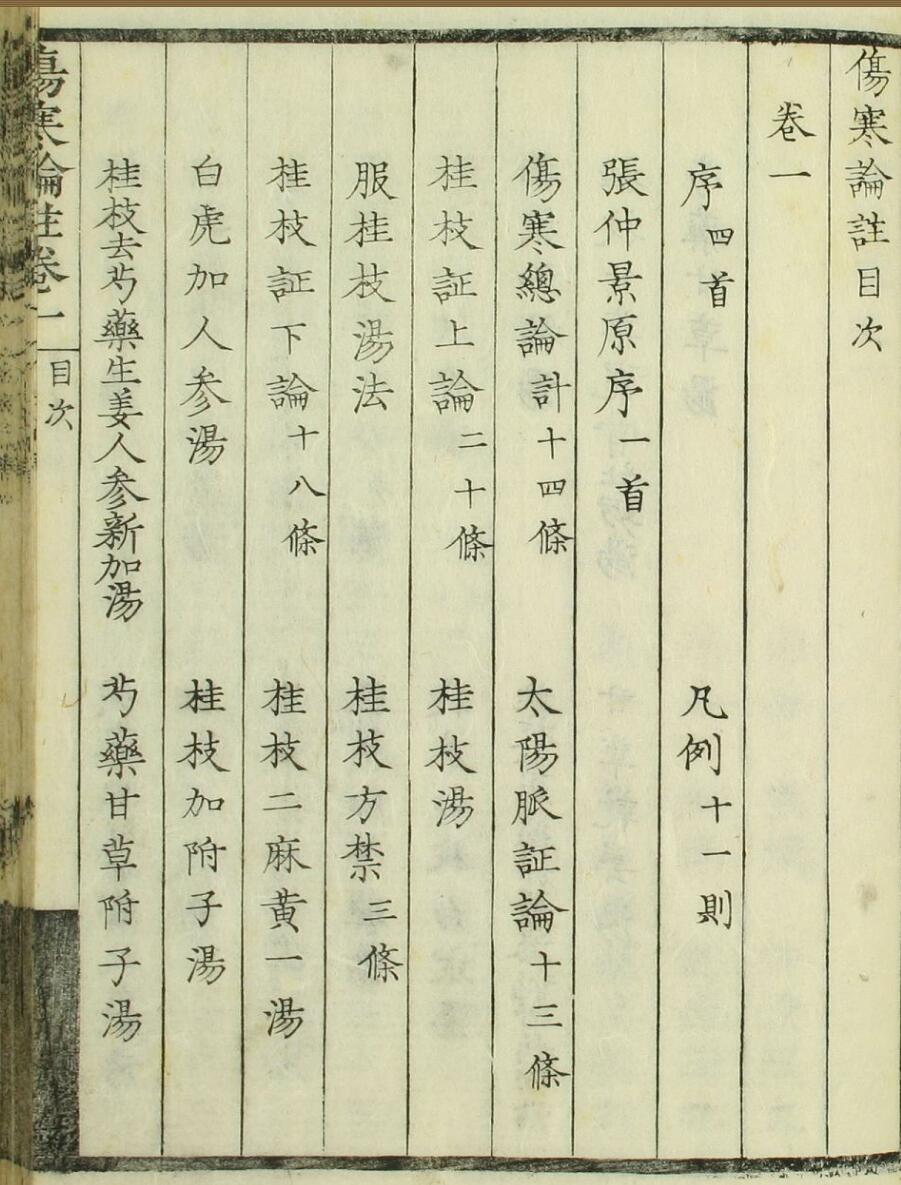 傷寒論註目次
卷一
序四首　凡例十一則
張仲景原序一首
傷寒總論計十四條　太陽脈証論十三條
桂枝証上論二十條　桂枝湯
服桂枝湯法　桂枝方禁三條
桂枝証下論十八條　桂枝二麻黃一湯
白虎加人参湯　桂枝加附子湯
桂枝去芍藥生姜人参新加湯　芍藥甘草附子湯
傷寒論註卷一　目次